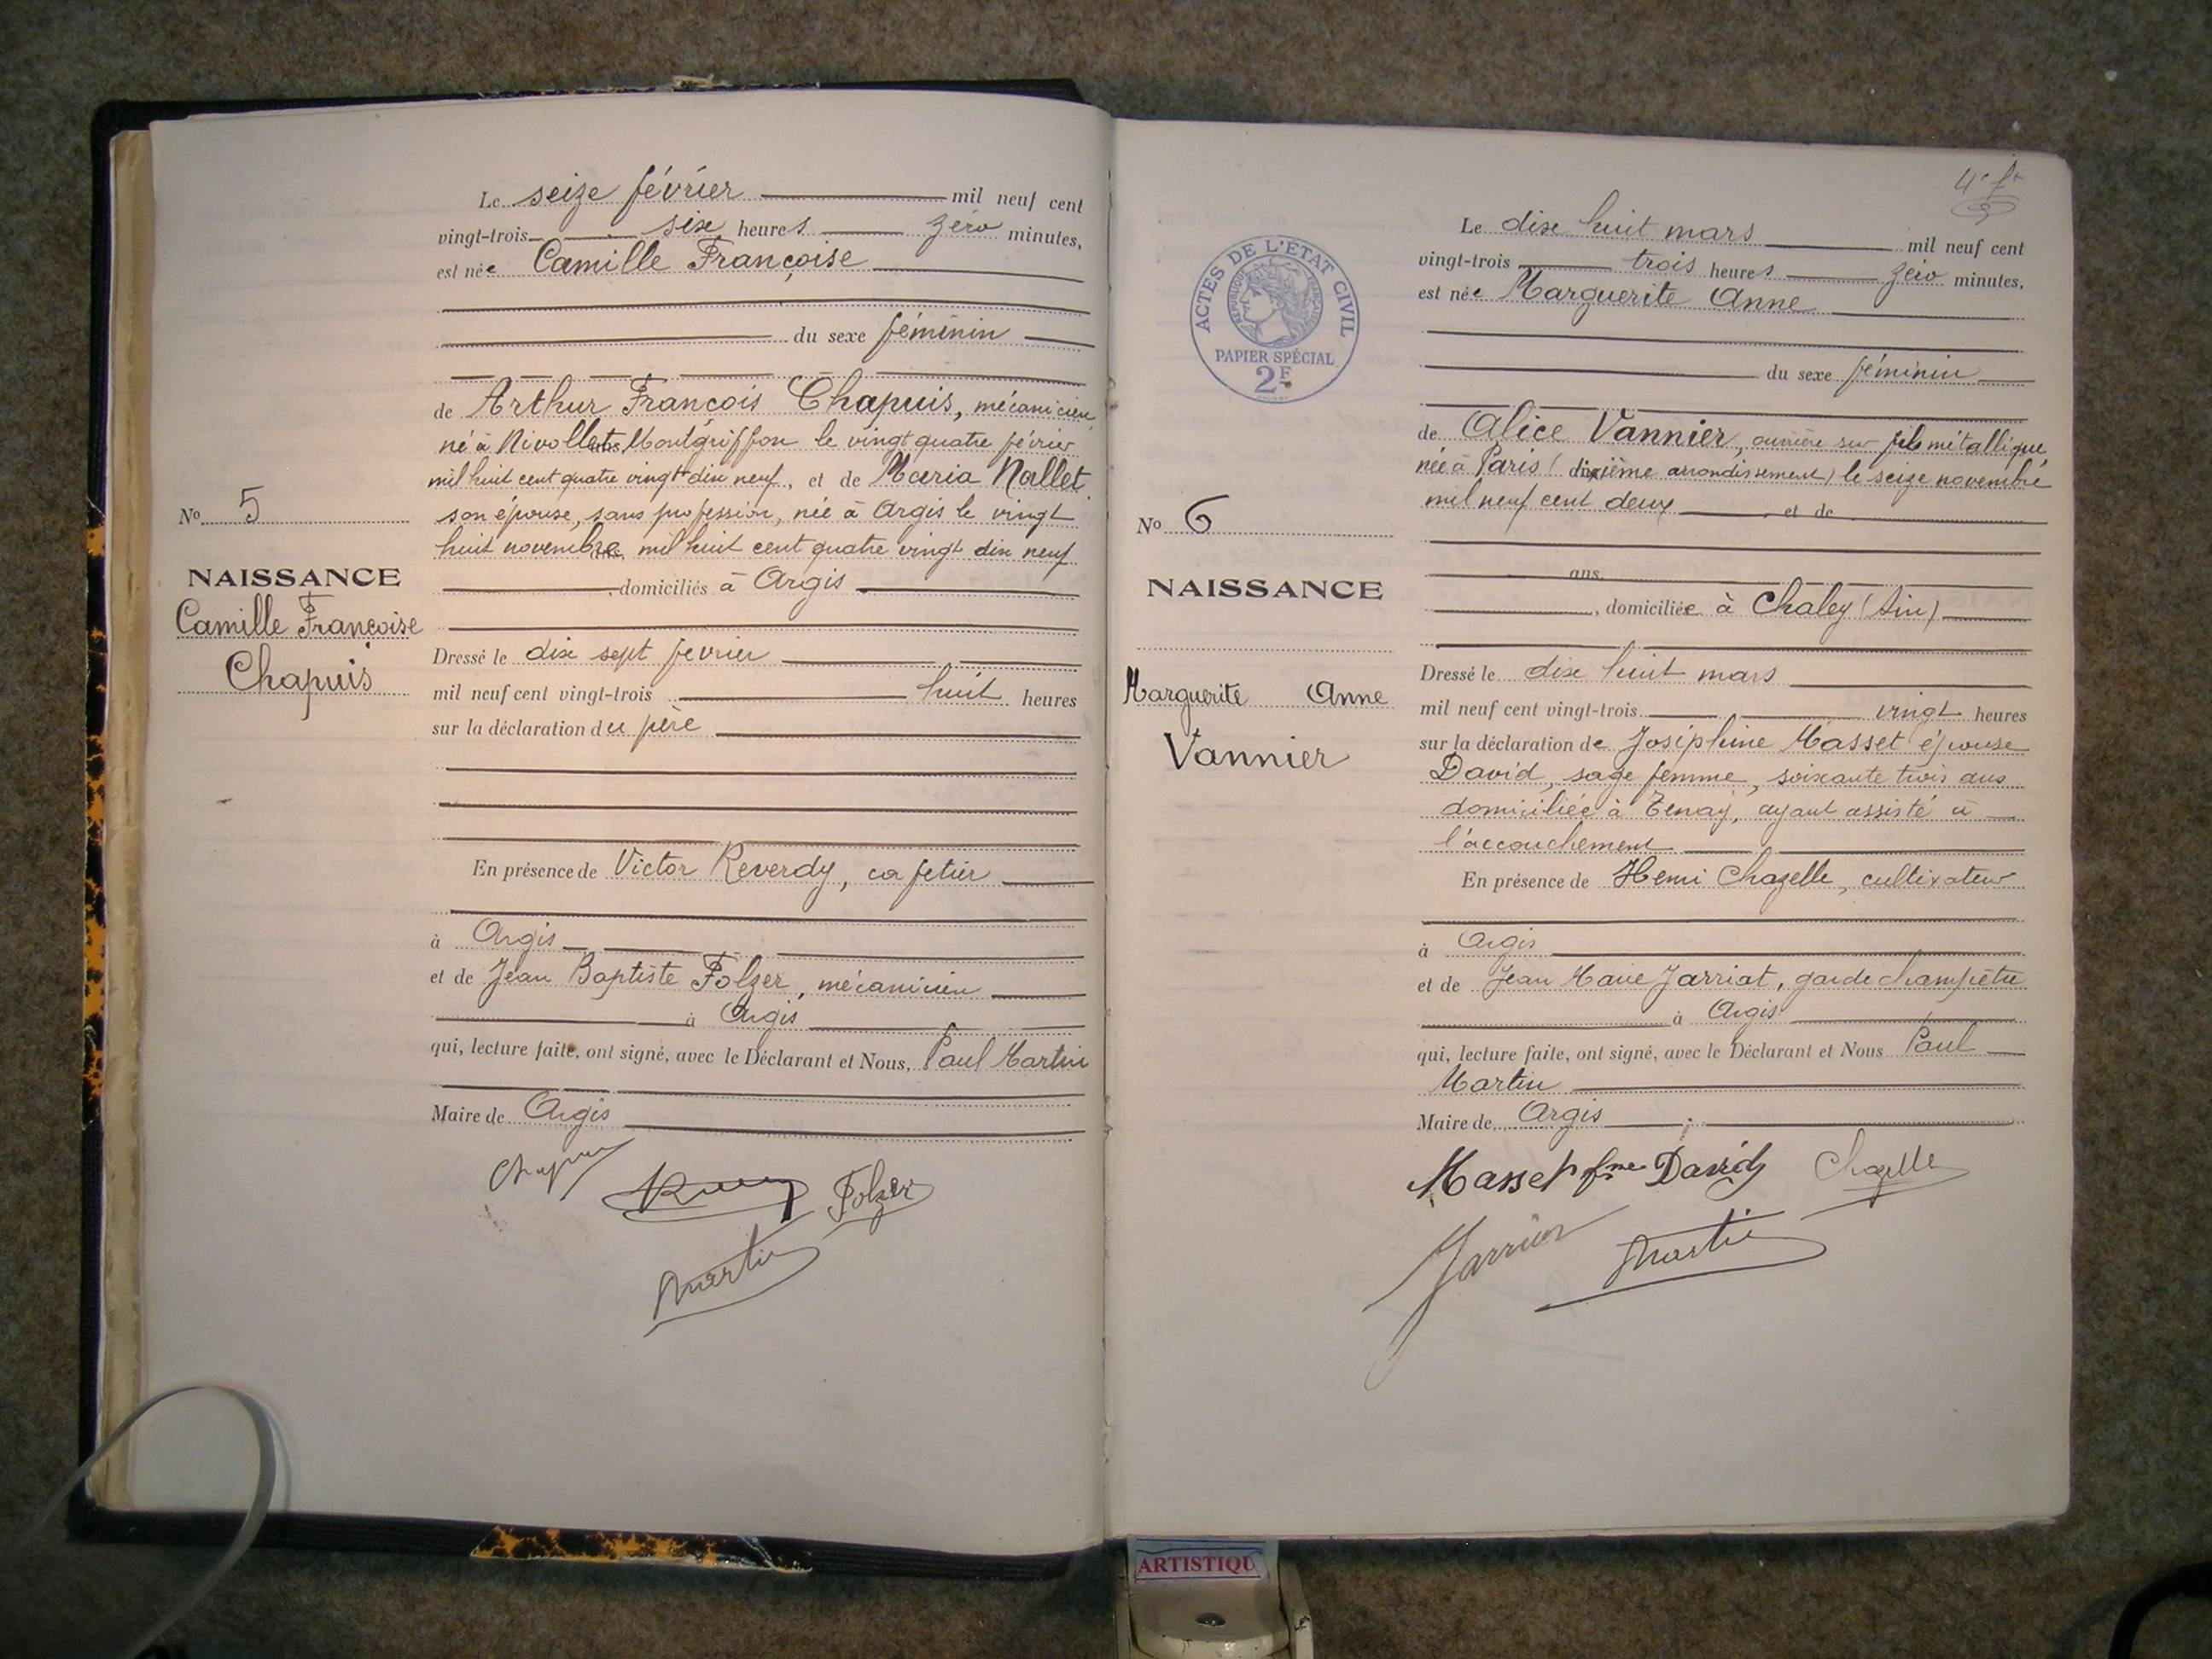 Le seize février mil neuf cent
vingt-trois six heures zéro minutes,
est née Camille Françoise
du sexe féminin
de Arthur François Chapuis, mécanicien
né à Nivollet Montgriffon le vingt quatre février
mil huit cent quatre vingt dix neuf, et de Maria Nallet
son épouse, sans profession, née à Argis le vingt
huit novembre mil huit cent quatre vingt dix neuf
domiciliés à Argis
Dressé le dix sept fevrier
mil neuf cent vingt-trois huit heures
sur la déclaration du père
En présence de Victor Reverdy, cafetier
à Argis
et de Jean Baptiste Folzer, mécanicien
à Argis
qui, lecture faite, ont signé, avec le Déclarant et Nous, Paul Martin
Maire de Argis
Folzer
Martin
No 5
NAISSANCE
Camille Françoise
Chapuis
4e ft
ACTES DE L'ETAT CIVIL
REPUBLIQUE FRANÇAISE
PAPIER SPÉCIAL
2F
Le dix huit mars mil neuf cent
vingt-trois trois heures zéro minutes,
est née Marguerite Anne
du sexe féminin
de Alice Vannier, ouvrière sur fils métallique,
née à Paris (dixième arrondissement) le seize novembre
mil neuf cent deux et de
ans,
, domiciliée à Chaley (Ain)
Dressé le dix huit mars
mil neuf cent vingt-trois vingt heures
sur la déclaration de Joséphine Masset épouse
David, sage femme, soixante trois ans
domiciliée à Tenay, ayant assisté à
l'accouchement
En présence de Henri Chazelle, cultivateur
à Argis
et de Jean Marie Jarriat, garde champêtre
à Argis
qui, lecture faite, ont signé, avec le Déclarant et Nous Paul
Martin
Maire de Argis
Masset fme David Chazelle
Martin
No 6
NAISSANCE
Marguerite Anne
Vannier
ARTISTIQU